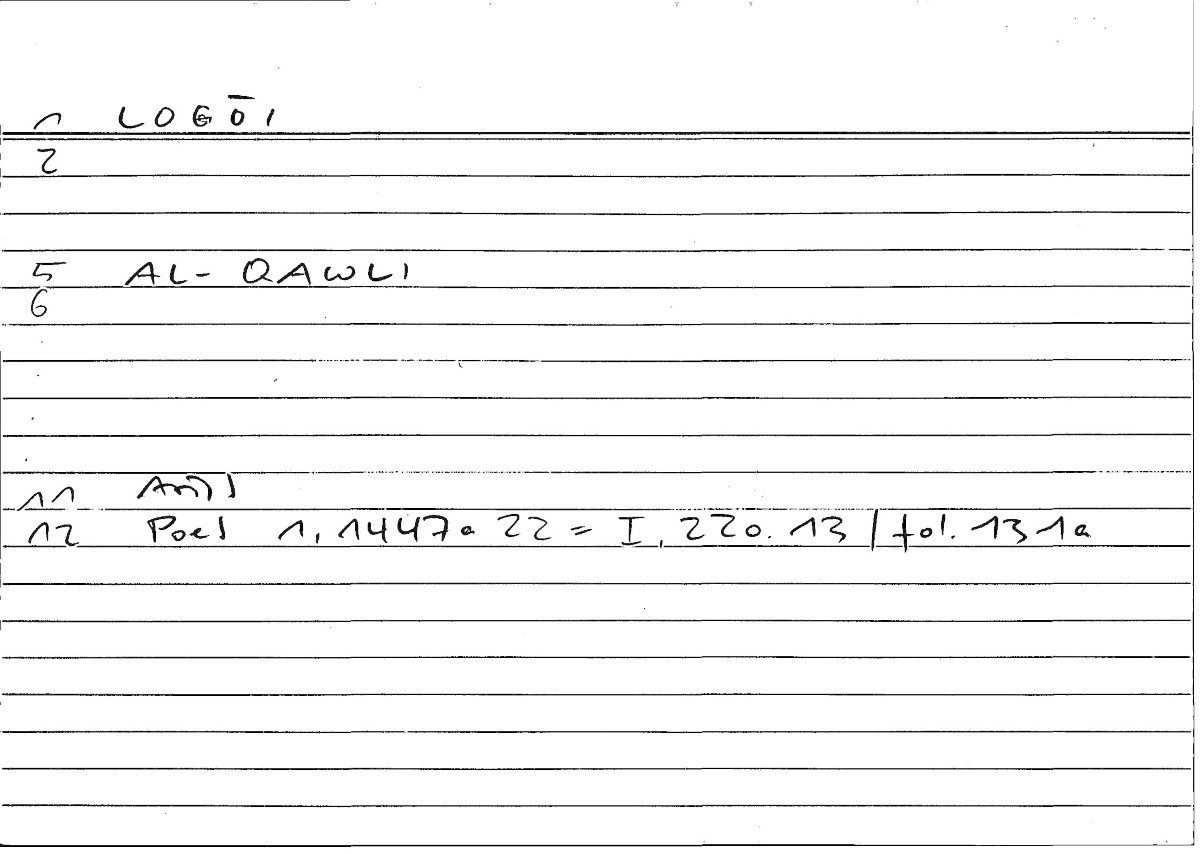 1 LOGŌI
2
5 AL-QAWLI
6
11 Arist
12 Poet 1, 1447a 22 = I, 220.13 / fol. 131a